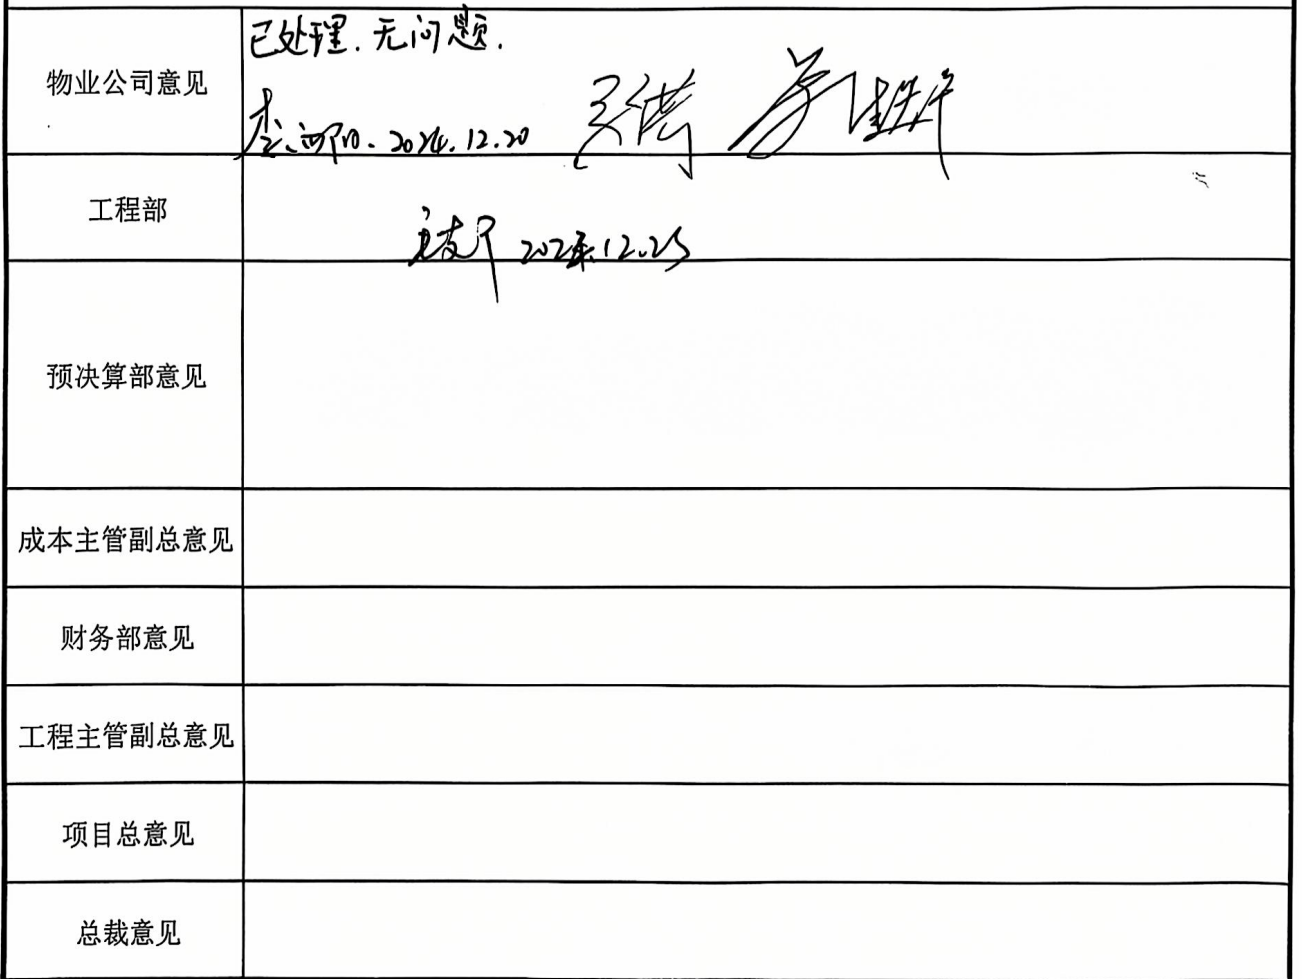 物业公司意见
已处理.无问题.
2024.12.20
工程部
12.25
预决算部意见
成本主管副总意见
财务部意见
工程主管副总意见
项目总意见
总裁意见